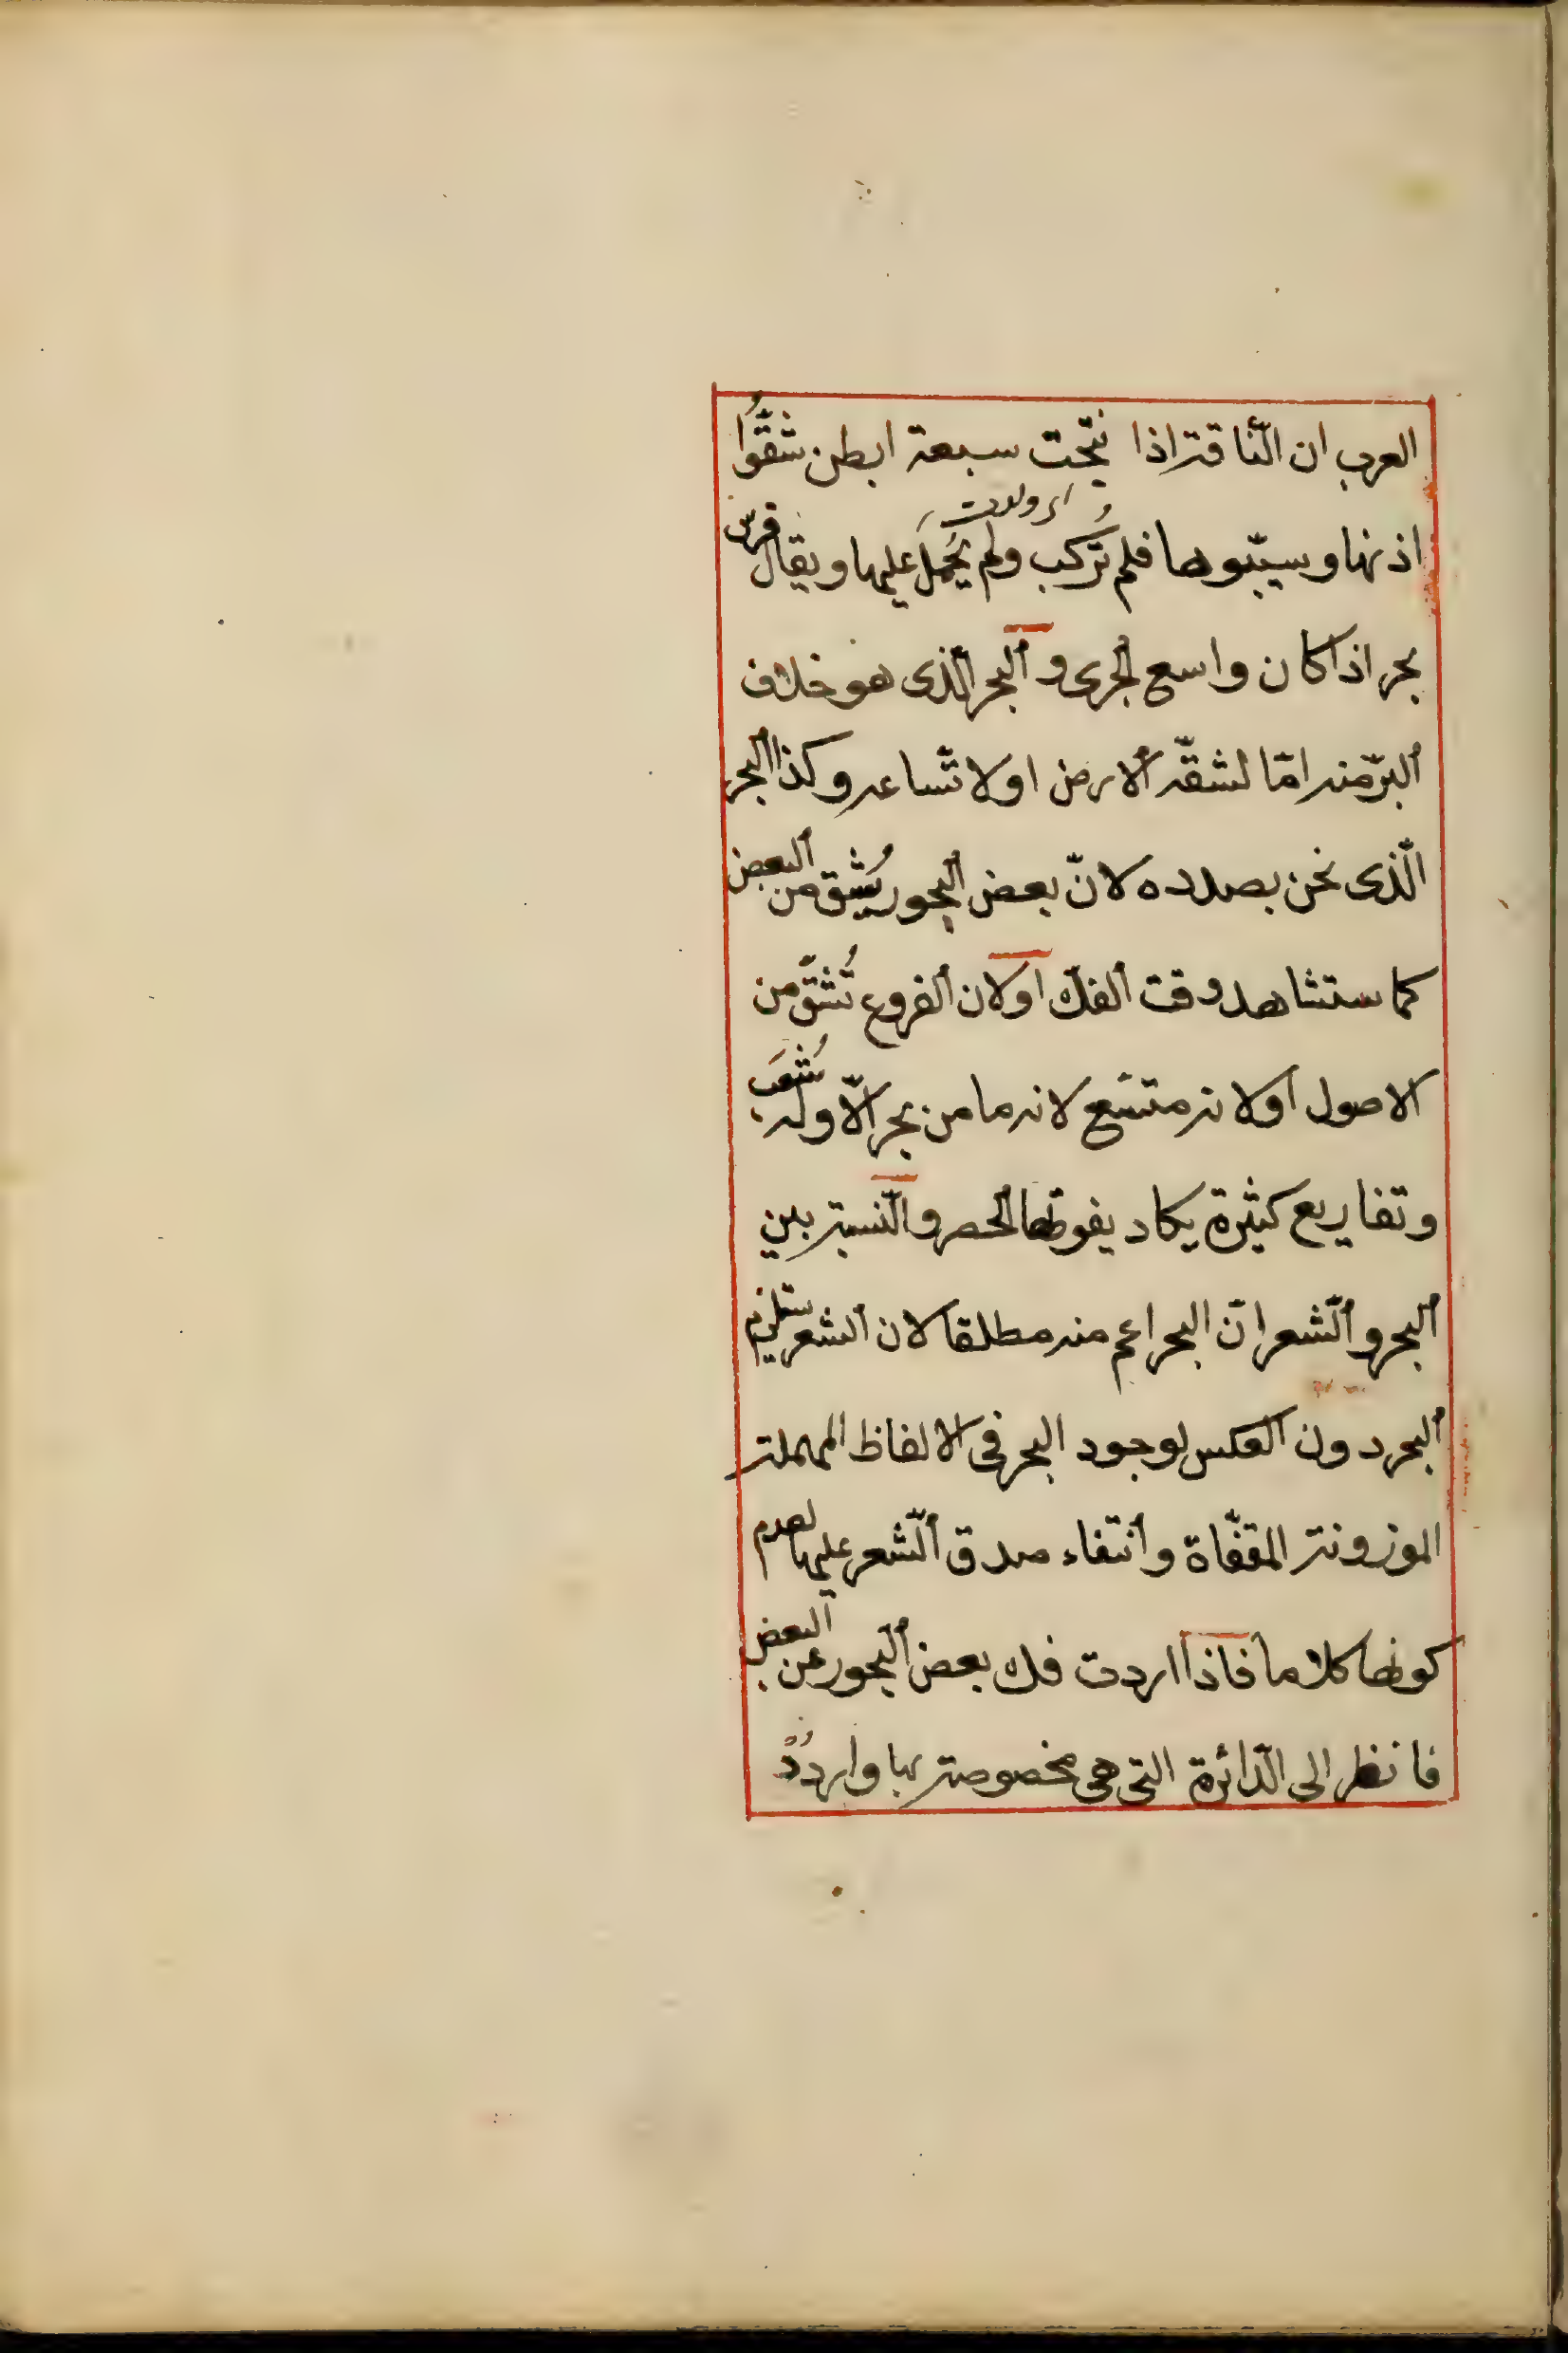 العرب ان النّاقة اذا نتجت سبعة ابطن شقّوُا
اى ولدت
اذنها وسيّبوها فلم تُركَب ولم يُحمَل عليها ويقال فرس
بحر اذا كان واسع الجرى و ألبحر الّذى هو خلاف
ألبرّ منه امّا لشقّه ألارض او لاتّساعه وكذا البحر
الّذى نحن بصدده لانّ بعض ألبحور يُشق من ألبعض
كما ستشاهد وقت ألفك او لان ألفروع تُشقّ من
الاصول او لانه متسع لانه ما من بحر الّا وله شُعَب
وتفاريع كثيرة يكاد يفوتها الحصر والنّسبة بين
ألبحر وألشّعر انّ البحر اعم منه مطلقا لان الشعر يستلزم
ألبحر دون ألعكس لوجود البحر فى الالفاظ المهملة
الموزونة المقفّاة وأنتفاء صدق ألشّعر عليها لعدم
كونها كلاما فاذا اردت فك بعض ألبحور عن البعض
فانظر الى الدّائرة التى هى مخصوصة بها واردُدْ